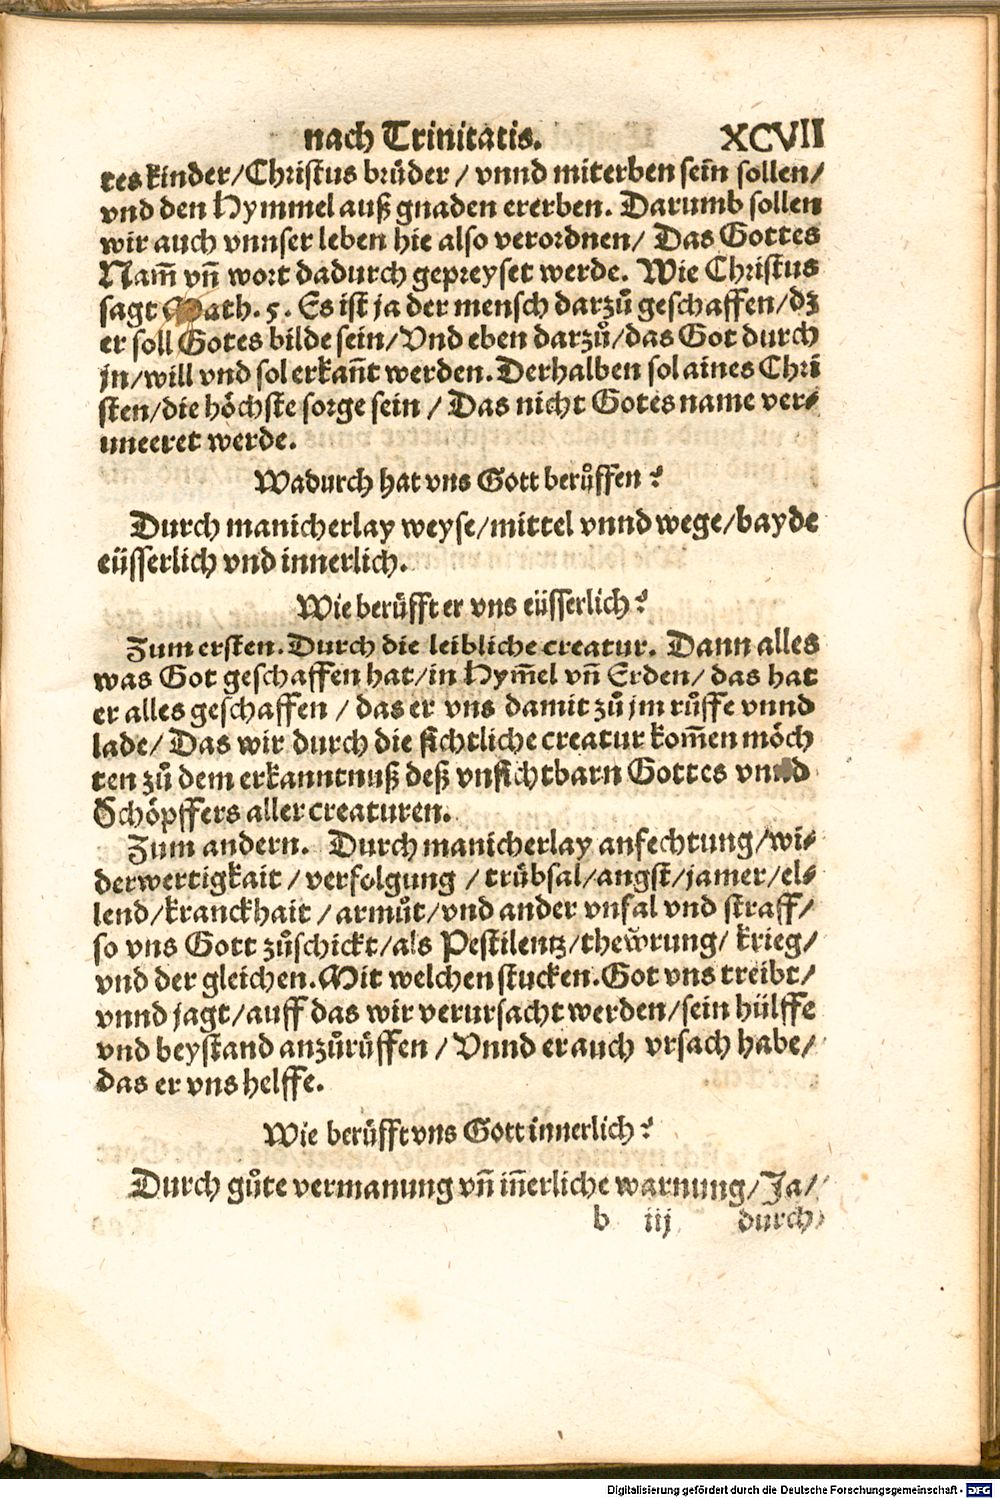 nach Trinitatis. XCVII
tes kinder/Christus brüder / vnnd miterben sein̄ sollen/
vnd den Hymmel auß gnaden ererben. Darumb sollen
wir auch vnnser leben hie also verordnen/ Das Gottes
Nam̄ vn̄ wort dadurch gepreyset werde. Wie Christus
sagt Math. 5. Es ist ja der mensch darzů geschaffen/dz
er soll Gotes bilde sein/Vnd eben darzů/das Got durch
jn/will vnd sol erkan̄t werden. Derhalben sol aines Chri
sten/die höchste sorge sein / Das nicht Gotes name ver⸗
uneeret werde.
Wadurch hat vns Gott berůffen?
Durch manicherlay weyse/mittel vnnd wege/bayde
eüsserlich vnd innerlich.
Wie berüfft er vns eüsserlich?
Zum ersten. Durch die leibliche creatur. Dann alles
was Got geschaffen hat/in Hym̄el vn̄ Erden/ das hat
er alles geschaffen / das er vns damit zů jm růffe vnnd
lade/ Das wir durch die sichtliche creatur kom̄en möch
ten zů dem erkanntnuß deß vnsichtbarn Gottes vnnd
Schöpffers aller creaturen.
Zum andern. Durch manicherlay anfechtung/wi⸗
derwertigkait / verfolgung / trübsal/angst/jamer/el⸗
lend/kranckhait / armůt/vnd ander vnfal vnd straff/
so vns Gott zůschickt/als Pestilentz/thewrung/ krieg/
vnd der gleichen. Mit welchen stucken. Got vns treibt/
vnnd jagt/auff das wir verursacht werden/sein hülffe
vnd beystand anzůrüffen / Vnnd er auch vrsach habe/
das er vns helffe.
Wie berüfft vns Gott innerlich?
Durch gůte vermanung vn̄ in̄erliche warnung/Ja/
b iij durch
Digitalisierung gefördert durch die Deutsche Forschungsgemeinschaft - DFG